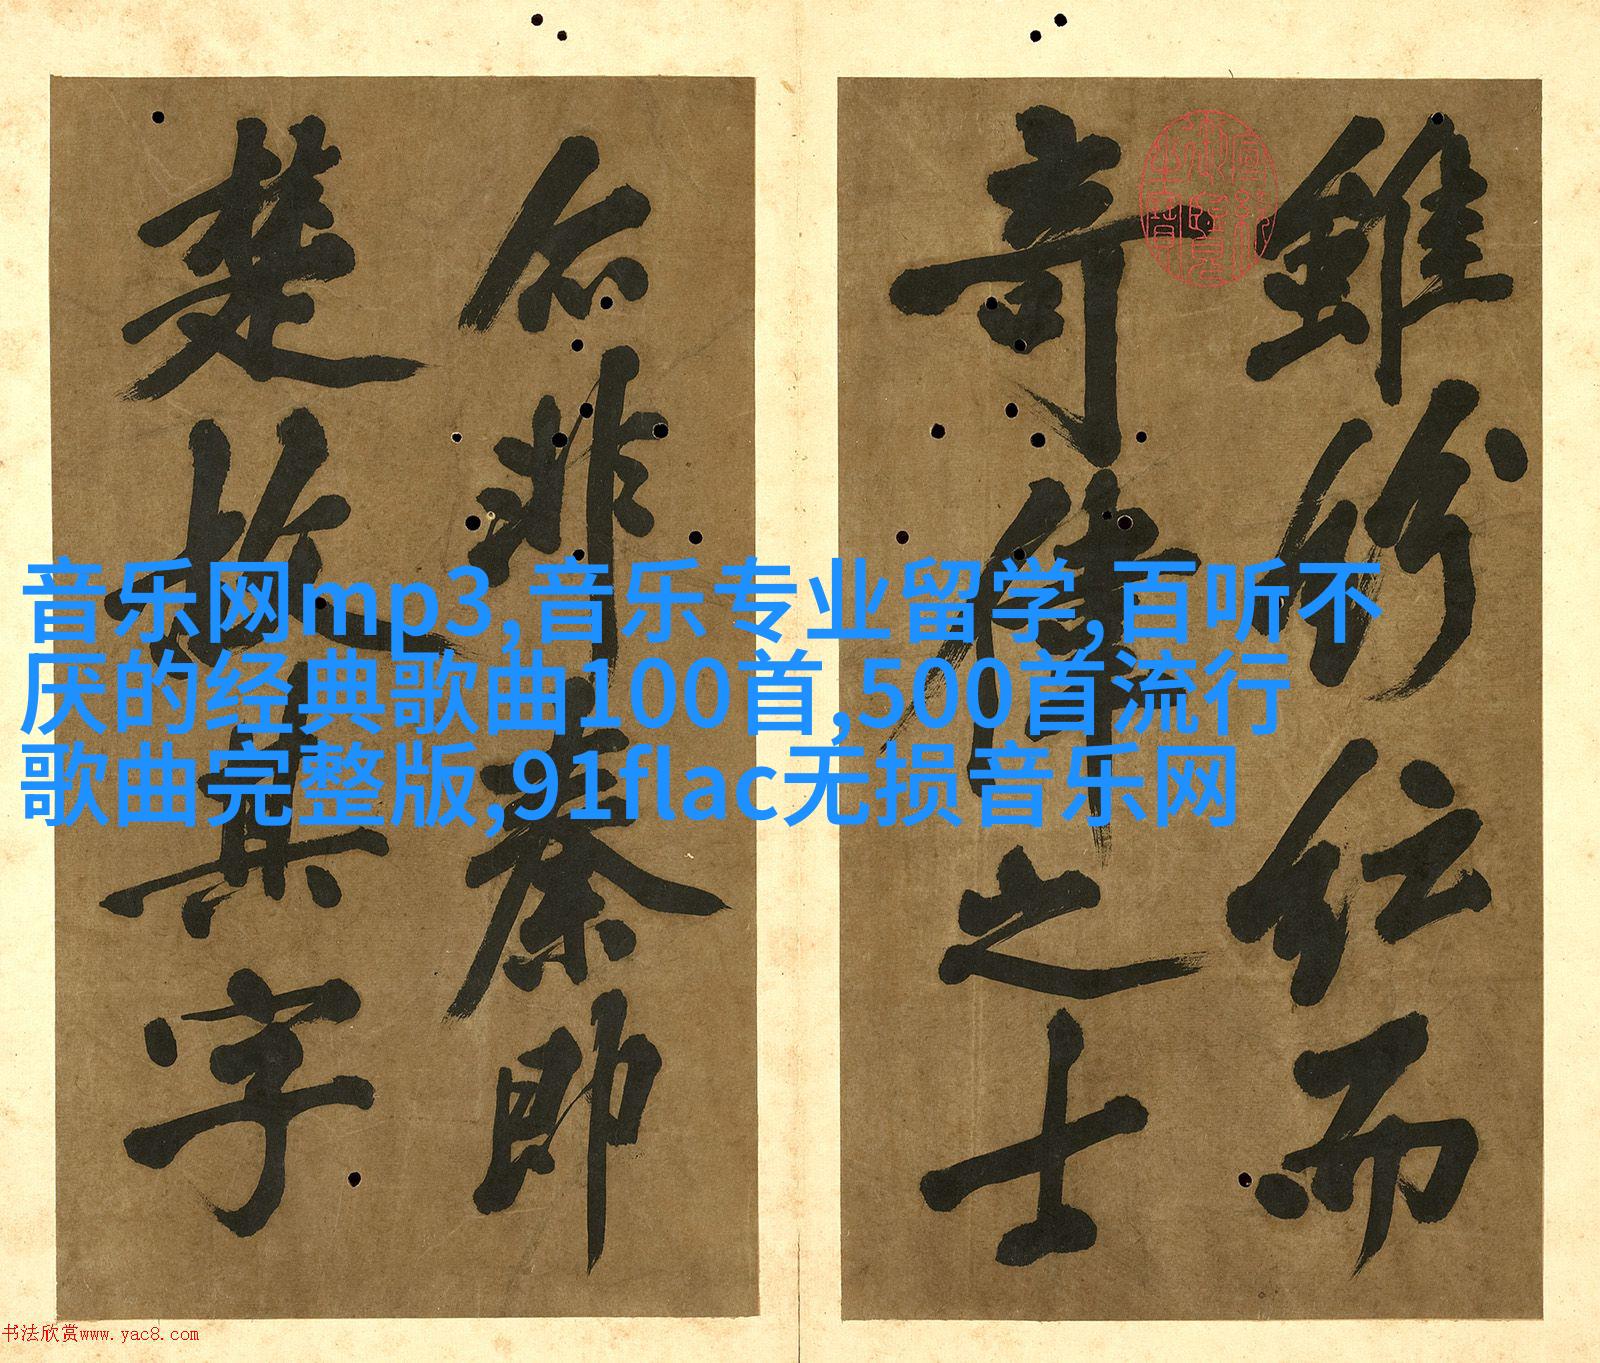 雖紛紜而
奇偉之士
非秦即
楚故其字
宣統御覽之寶
音乐网mp3,音乐专业留学,百听不
厌的经典歌曲100首,500首流行
歌曲完整版,91flac无损音乐网
书法欣赏www.yac8.com